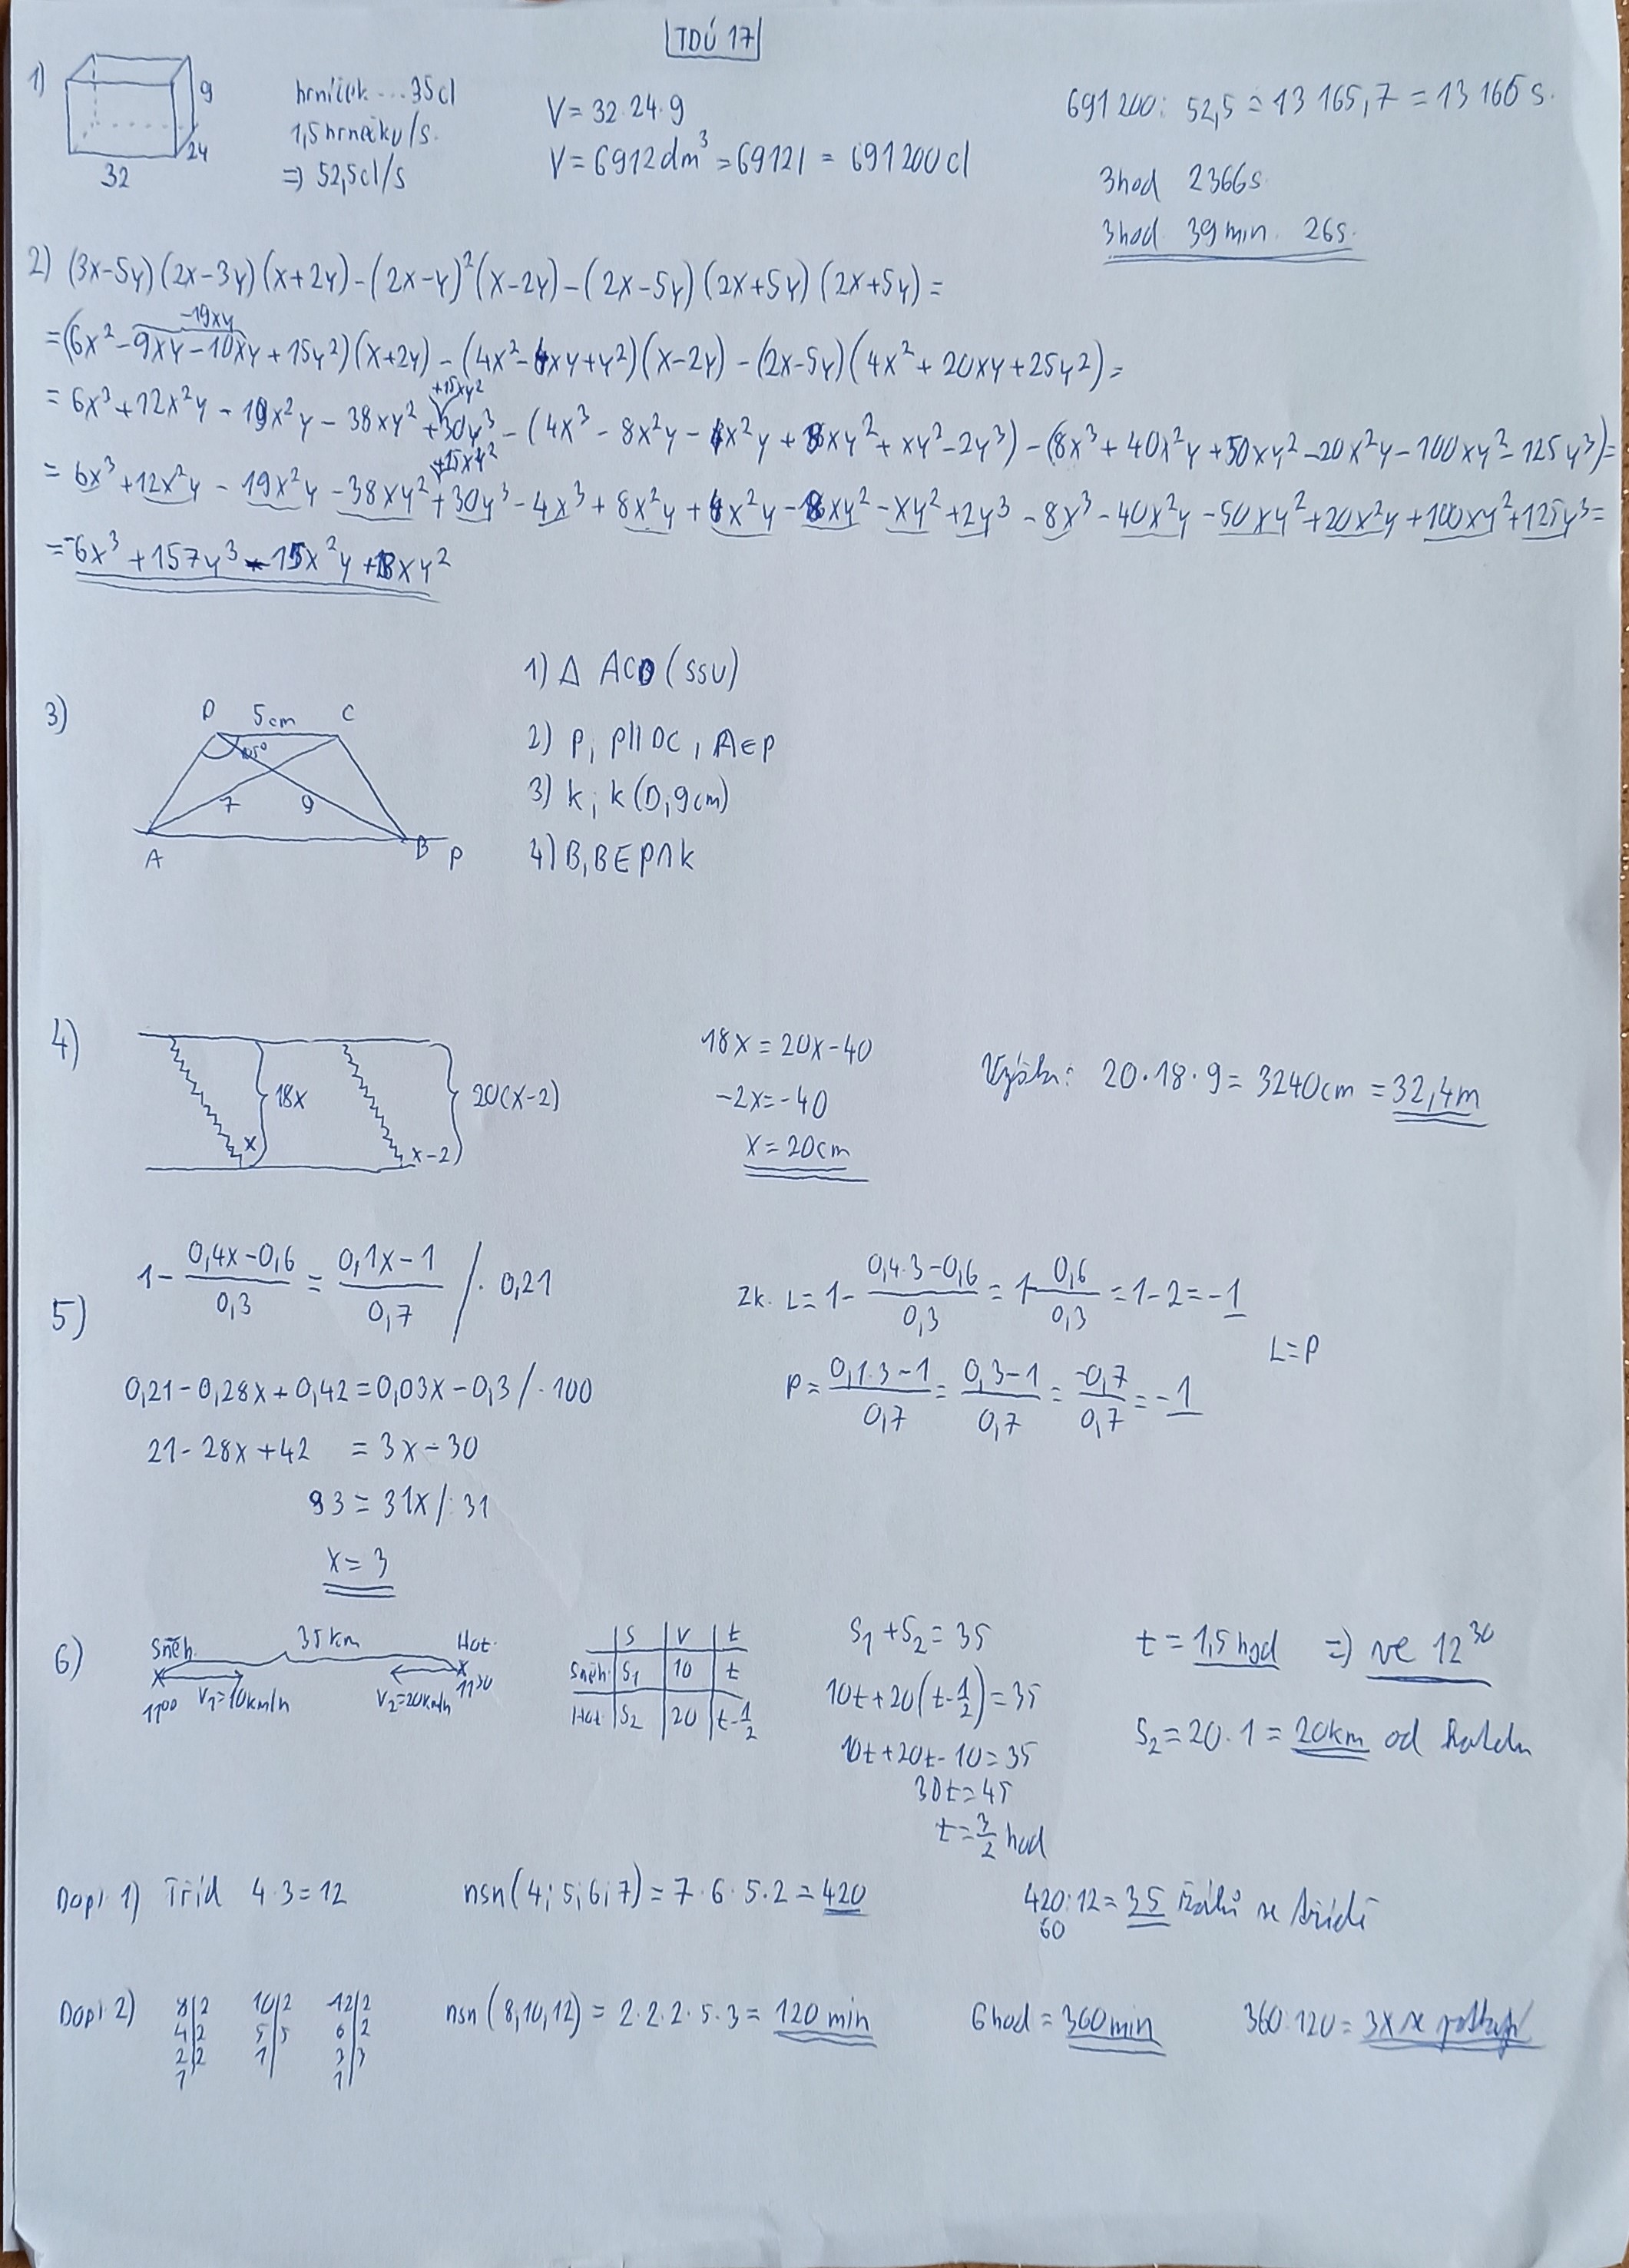 TDÚ 17
1)
9
24
32
hrníček...35cl
1,5 hrnečku/s.
⇒ 52,5cl/s
V = 32·24·9
V = 6912dm³ = 6912l = 691 200cl
691 200 : 52,5 = 13 165,7 = 13 166 s.
3hod 2366s
3hod 39min. 26s.
2) (3x-5y)(2x-3y)(x+2y) - (2x-y)²(x-2y) - (2x-5y)(2x+5y)(2x+5y) =
-19xy
= (6x² - 9xy - 10xy + 15y²)(x+2y) - (4x² - 4xy + y²)(x-2y) - (2x-5y)(4x² + 20xy + 25y²) =
+15xy²
= 6x³ + 12x²y - 19x²y - 38xy² + 30y³ - (4x³ - 8x²y - 4x²y + 8xy² + xy² - 2y³) - (8x³ + 40x²y + 50xy² - 20x²y - 100xy² - 125y³) =
+15xy²
= 6x³ + 12x²y - 19x²y - 38xy² + 30y³ - 4x³ + 8x²y + 4x²y - 8xy² - xy² + 2y³ - 8x³ - 40x²y - 50xy² + 20x²y + 100xy² + 125y³ =
= -6x³ + 157y³ - 15x²y + 18xy²
3)
D 5cm C
7 9
A B p
1) Δ ACD (ssu)
2) p, p||DC, A∈p
3) k; k(D, 9cm)
4) B, B∈p∩k
4)
18x
20(x-2)
x
x-2
18x = 20x - 40
-2x = -40
x = 20cm
20·18·9 = 3240cm = 32,4m
5)
1 - (0,4x-0,6)/0,3 = (0,1x-1)/0,7 /· 0,21
0,21 - 0,28x + 0,42 = 0,03x - 0,3 /·100
21 - 28x + 42 = 3x - 30
93 = 31x /:31
x = 3
Zk. L = 1 - (0,4·3-0,6)/0,3 = 1 - 0,6/0,3 = 1-2 = -1
P = (0,1·3-1)/0,7 = (0,3-1)/0,7 = -0,7/0,7 = -1
L=P
6)
Sněh. 35km Hot.
11⁰⁰ v₁=10km/h v₂=20km/h 11³⁰
s v t
Sněh. s₁ 10 t
Hot. s₂ 20 t-1/2
s₁ + s₂ = 35
10t + 20(t-1/2) = 35
10t + 20t - 10 = 35
30t = 45
t = 3/2 hod
t = 1,5hod ⇒ ve 12³⁰
s₂ = 20·1 = 20km od
Dopl. 1) Tříd 4·3=12
nsn(4;5;6;7) = 7·6·5·2 = 420
420:12 = 35 žáků ve třídě
60
Dopl. 2)
8|2 10|2 12|2
4|2 5|5 6|2
2|2 1| 3|3
1 1|
nsn(8,10,12) = 2·2·2·5·3 = 120min
6hod = 360min
360:120 = 3x se potkají